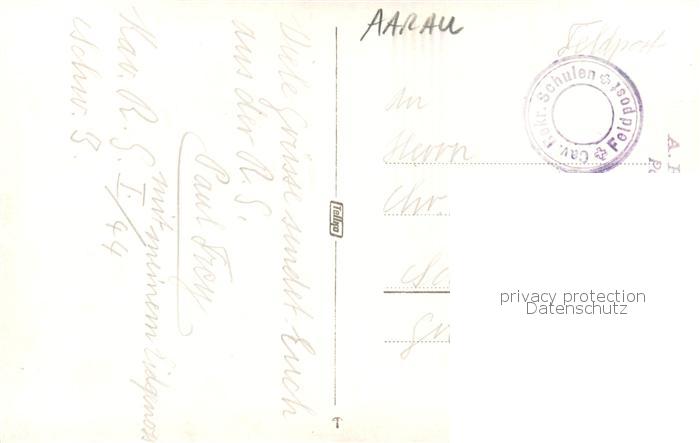 AARAU
Feldpost
Cav. Rekr. Schulen
Feldpost
An
Herrn
Chr.
Tellko
privacy protection
Datenschutz
Viele Grüsse sendet Euch
aus der R. S.
Paul Frey
mit meinem Eidgenoss
Kav. R. S. I./44
Schw. 3.